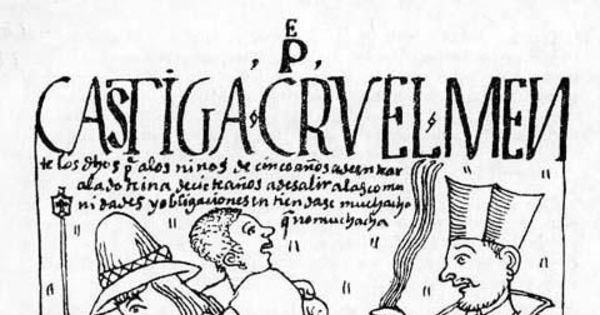 E
, p ,
CASTIGA CRVELMEN
te los dhos p alos niños de cinco años adeentrar
ala dotrina de ciete años a de salir alas comu
nidades y obligaciones entiendase muchacho
q̃ no muchacha